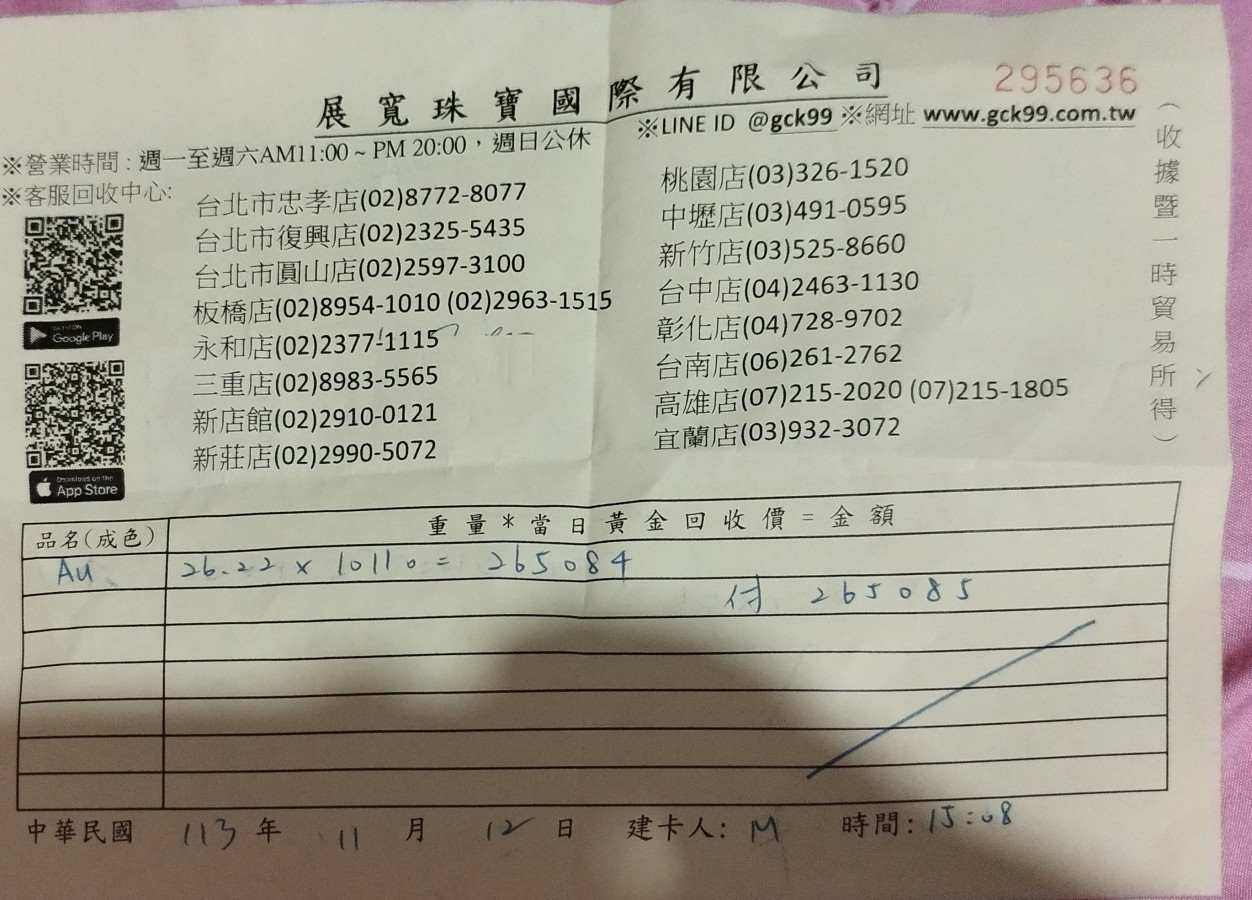 展寬珠寶國際有限公司
295636
※LINE ID @gck99 ※網址 www.gck99.com.tw
※營業時間:週一至週六AM11:00~PM 20:00,週日公休
※客服回收中心:
台北市忠孝店(02)8772-8077
台北市復興店(02)2325-5435
台北市圓山店(02)2597-3100
板橋店(02)8954-1010 (02)2963-1515
永和店(02)2377-1115
三重店(02)8983-5565
新店館(02)2910-0121
新莊店(02)2990-5072
桃園店(03)326-1520
中壢店(03)491-0595
新竹店(03)525-8660
台中店(04)2463-1130
彰化店(04)728-9702
台南店(06)261-2762
高雄店(07)215-2020 (07)215-1805
宜蘭店(03)932-3072
(收據暨一時貿易所得)
GET IT ON
Google Play
Download on the
App Store
品名(成色) 重量*當日黃金回收價=金額
Au 26.22 x 10110 = 265084
付 265085
中華民國 113 年 11 月 12 日 建卡人: M 時間: 15:08